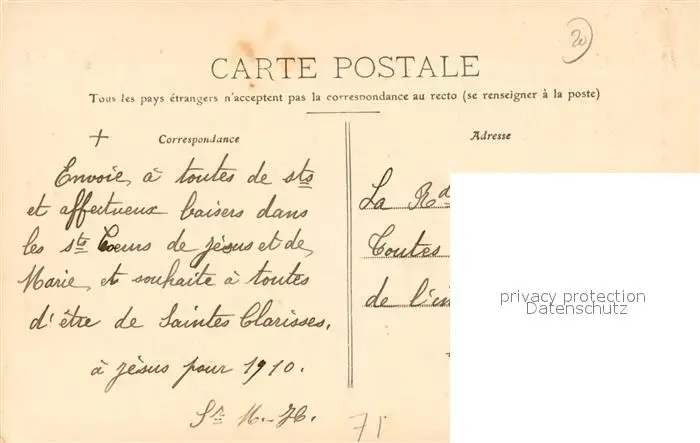 20
CARTE POSTALE
Tous les pays étrangers n'acceptent pas la correspondance au recto (se renseigner à la poste)
+ Correspondance
Envoie à toutes de sts
et affectueux baisers dans
les sts Coeurs de Jésus et de
Marie, et souhaite à toutes
d'être de Saintes Clarisses,
à Jésus pour 1910.
Sr M.
71
Adresse
La Rd
Toutes
de l'
privacy protection
Datenschutz